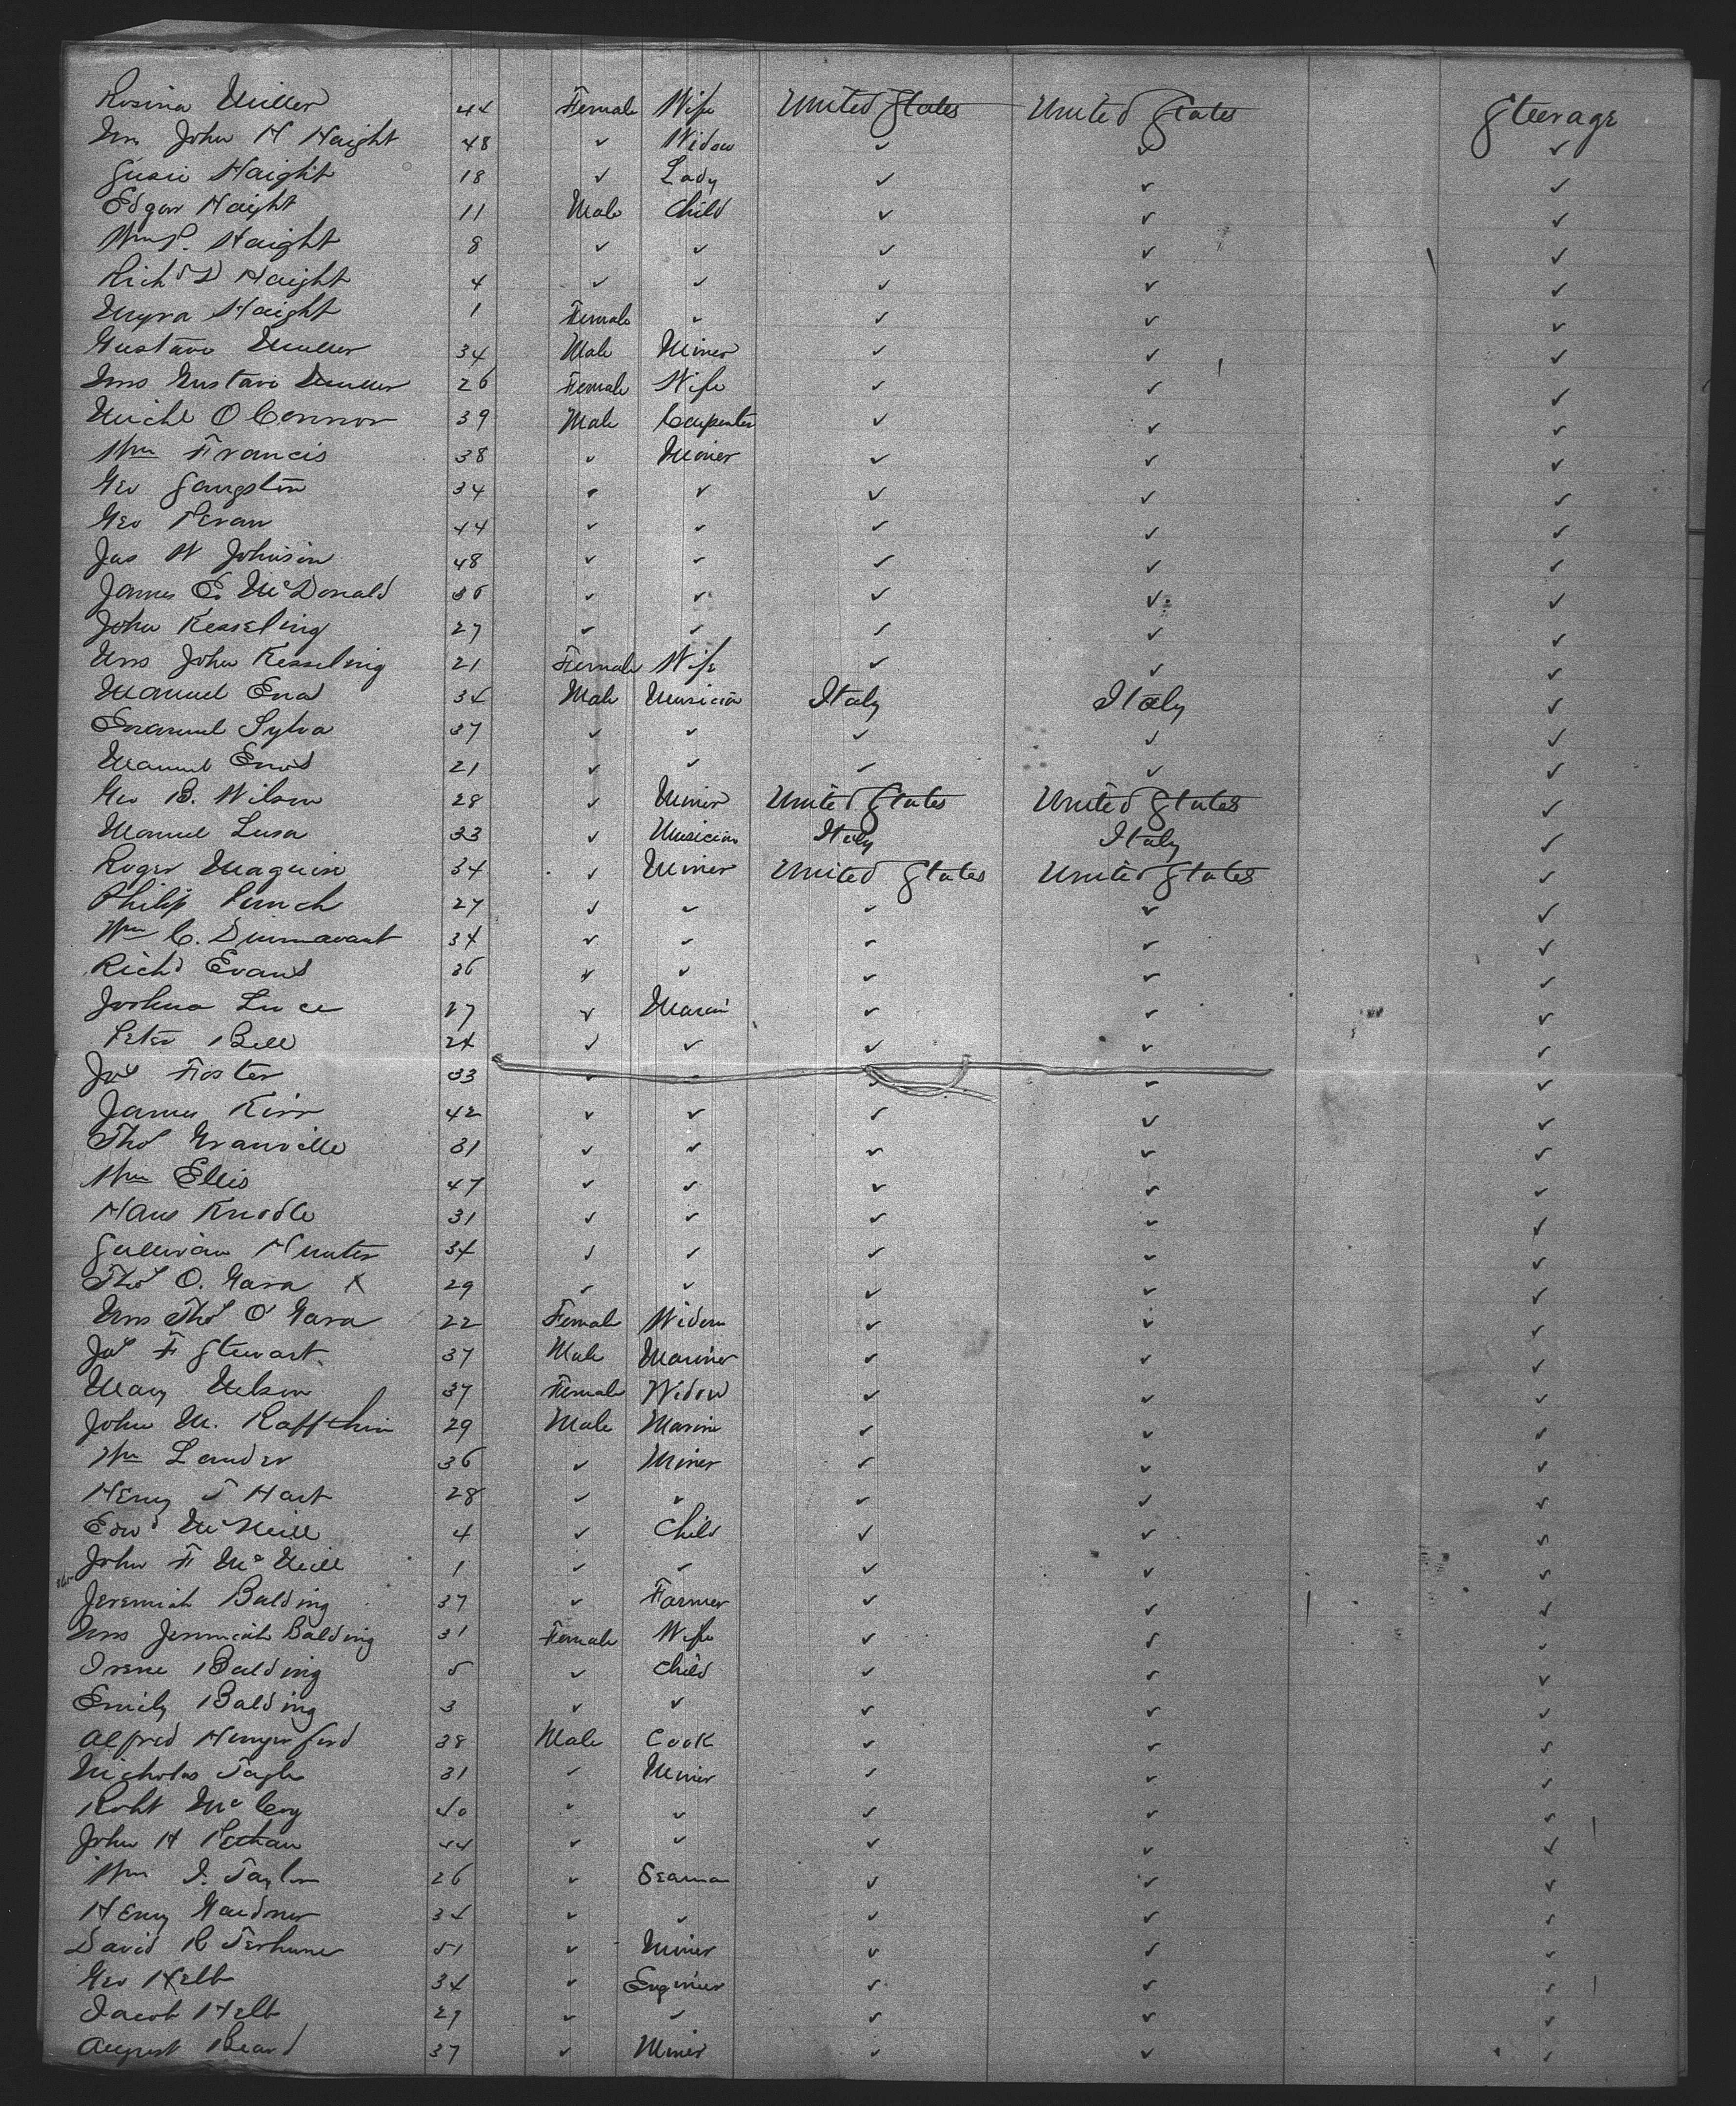 Rosina Miller 44 Female Wife United States United States Steerage
Mrs John H Haight 48 ✓ Widow ✓ ✓ ✓
Susie Haight 18 ✓ Lady ✓ ✓ ✓
Edgar Haight 11 Male Child ✓ ✓ ✓
Wm P. Haight 8 ✓ ✓ ✓ ✓ ✓
Richd D Haight 4 ✓ ✓ ✓ ✓ ✓
Myra Haight 1 Female ✓ ✓ ✓ ✓
Gustavo Muller 34 Male Miner ✓ ✓ ✓
Mrs Gustavo Muller 26 Female Wife ✓ ✓ ✓
Michl O Connor 39 Male Carpenter ✓ ✓ ✓
Wm Francis 38 ✓ Miner ✓ ✓ ✓
Geo Sangston 34 ✓ ✓ ✓ ✓ ✓
Geo Pevan 44 ✓ ✓ ✓ ✓ ✓
Jas W Johnson 48 ✓ ✓ ✓ ✓ ✓
James E. McDonald 36 ✓ ✓ ✓ ✓ ✓
John Kesseling 27 ✓ ✓ ✓ ✓ ✓
Mrs John Kesseling 21 Female Wife ✓ ✓ ✓
Manuel Enos 34 Male Musician Italy Italy ✓
Emanuel Sylva 37 ✓ ✓ ✓ ✓ ✓
Manuel Enos 21 ✓ ✓ ✓ ✓ ✓
Geo B. Wilson 28 ✓ Miner United States United States ✓
Manuel Lusa 33 ✓ Musician Italy Italy ✓
Roger Maguire 34 ✓ Miner United States United States ✓
Philip Punch 27 ✓ ✓ ✓ ✓ ✓
Wm C. Dunnavant 34 ✓ ✓ ✓ ✓ ✓
Richd Evans 36 ✓ ✓ ✓ ✓ ✓
Joshua Luce 27 ✓ ✓ ✓ ✓
Peter Bell 24 ✓ ✓ ✓ ✓ ✓
Jos Foster 33 ✓ ✓ ✓ ✓ ✓
James Kirr 42 ✓ ✓ ✓ ✓ ✓
Thos Granville 31 ✓ ✓ ✓ ✓ ✓
Wm Ellis 47 ✓ ✓ ✓ ✓ ✓
Hans Knodle 31 ✓ ✓ ✓ ✓ ✓
Sullivan Hunter 34 ✓ ✓ ✓ ✓ ✓
Thos O. Gara X 29 ✓ ✓ ✓ ✓ ✓
Mrs Thos O Gara 22 Female Widow ✓ ✓ ✓
Jos F Stewart 37 Male Mariner ✓ ✓ ✓
Mary Nelson 37 Female Widow ✓ ✓ ✓
John M. 29 Male ✓ ✓ ✓
Wm Lander 36 ✓ Miner ✓ ✓ ✓
Henry T Hart 28 ✓ ✓ ✓ ✓ ✓
Edwd McNeill 4 ✓ Child ✓ ✓ ✓
John F McNeill 1 ✓ ✓ ✓ ✓ ✓
Jeremiah Balding 37 ✓ Farmer ✓ ✓ ✓
Mrs Jeremiah Balding 31 Female Wife ✓ ✓ ✓
Irene Balding 5 ✓ Child ✓ ✓ ✓
Emily Balding 3 ✓ ✓ ✓ ✓ ✓
Alfred Hungerford 38 Male Cook ✓ ✓ ✓
Nicholas Tagle 31 ✓ Miner ✓ ✓ ✓
Robt McCoy 40 ✓ ✓ ✓ ✓ ✓
John H 44 ✓ ✓ ✓ ✓ ✓
Wm I. Taylor 26 ✓ Seaman ✓ ✓ ✓
Henry Gardner 34 ✓ ✓ ✓ ✓ ✓
David R Terhune 51 ✓ Miner ✓ ✓ ✓
Geo Helb 34 ✓ Engineer ✓ ✓ ✓
Jacob Helb 29 ✓ ✓ ✓ ✓ ✓
August Beard 37 ✓ Miner ✓ ✓ ✓